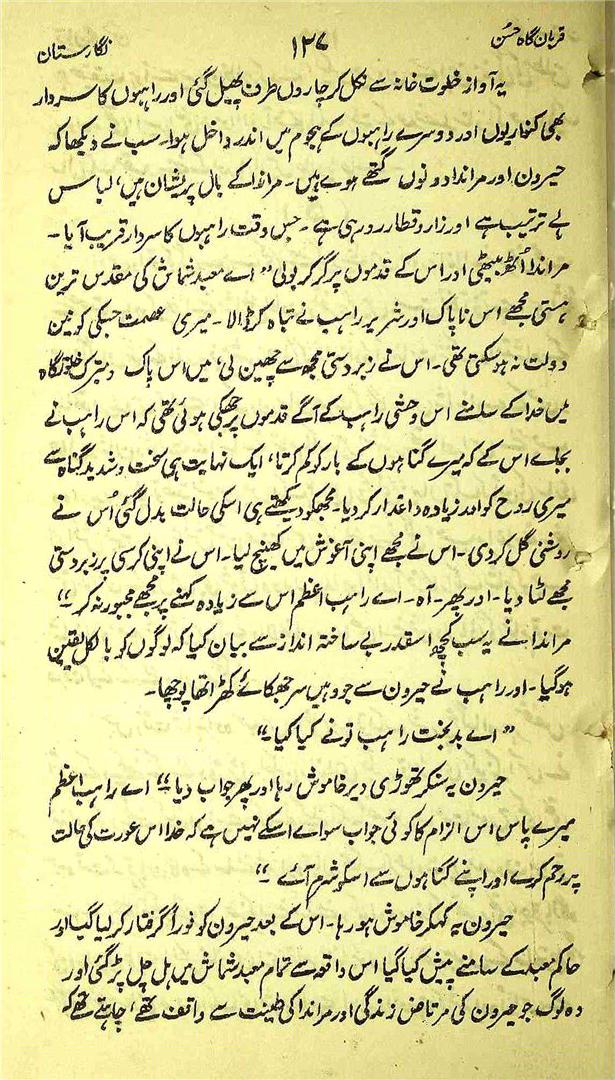 قربان گاہ حسُن ۱۳۷ نگارستان
یہ آواز خلوت خانہ سے نکل کر چاروں طرف پھیل گئی اور راہبوں کا سردار
بھی کنواریوں اور دوسرے راہبوں کے ہجوم میں اندر داخل ہوا۔ سب نے دیکھا کہ
حیرون اور مراندا دونوں گتھے ہوے ہیں۔ مراندا کے بال پریشان ہیں، لباس
بے ترتیب ہے اور زار و قطار رو رہی ہے ۔ جس وقت راہبوں کا سردار قریب آیا ۔
مراندا اُٹھ بیٹھی اور اس کے قدموں پر گر کر بولی ”اے معبد شماش کی مقدس ترین
ہستی مجھے اس ناپاک اور شریر راہب نے تباہ کر ڈالا ۔ میری عصمت جسکی کونین
دولت نہ ہو سکتی تھی ۔ اس نے زبردستی مجھ سے چھین لی، میں اس پاک و متبرک خلوتگاہ
میں خدا کے سامنے اس وحشی راہب کے آگے قدموں پر جھکی ہوئی تھی کہ اس راہب نے
بجاے اس کے کہ میرے گناہوں کے بار کو کم کرتا، ایک نہایت ہی سخت و شدید گناہ سے
میری روح کو اور زیادہ داغدار کر دیا ۔ مجھکو دیکھتے ہی اسکی حالت بدل گئی اُس نے
روشنی گل کر دی ۔ اس نے مجھے اپنی آغوش میں کھینچ لیا ۔ اس نے اپنی کرسی پر زبردستی
مجھے لٹا دیا ۔ اور پھر ۔ آہ ۔ اے راہب اعظم اس سے زیادہ کہنے پر مجھے مجبور نہ کر“
مراندا نے یہ سب کچھ اسقدر بے ساختہ انداز سے بیان کیا کہ لوگوں کو بالکل یقین
ہوگیا ۔ اور راہب نے حیرون سے جو وہیں سر جھکائے کھڑا تھا پوچھا ۔
”اے بدبخت راہب تو نے کیا کیا ۔“
حیرون یہ سنکر تھوڑی دیر خاموش رہا اور پھر جواب دیا ”اے راہب اعظم
میرے پاس اس الزام کا کوئی جواب سواے اسکے نہیں ہے کہ خدا اس عورت کی حالت
پر رحم کرے اور اپنے گناہوں سے اسکو شرم آئے ۔“
حیرون یہ کہکر خاموش ہو رہا ۔ اس کے بعد حیرون کو فوراً گرفتار کر لیا گیا اور
حاکم معبد کے سامنے پیش کیا گیا اس واقعہ سے تمام معبد شماش میں ہل چل پڑ گئی اور
وہ لوگ جو حیرون کی مرتاض زندگی اور مراندا کی طینت سے واقف تھے، چاہتے تھے کہ